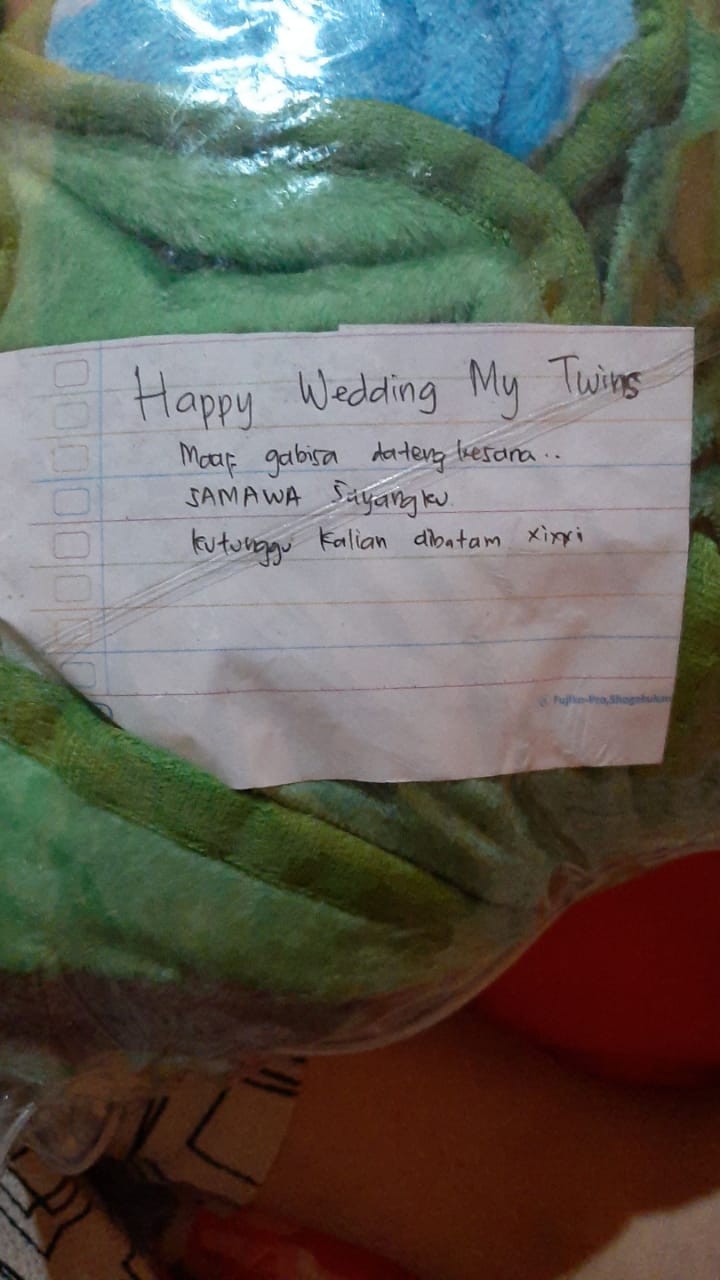 Happy Wedding My Twins
Maaf gabisa dateng kesana..
SAMAWA Sayangku
kutunggu kalian dibatam xixxi
Fujiko-Pro,Shogakukan